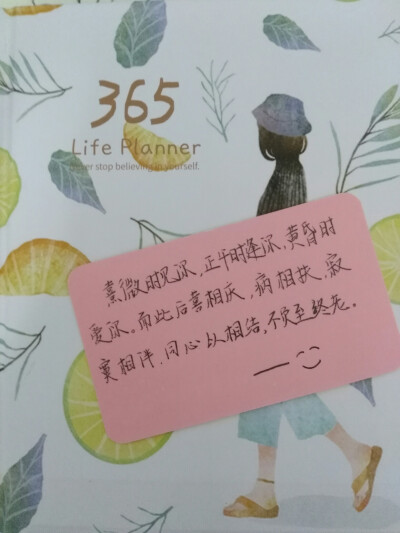 365
Life Planner
er stop believing in yourself.
熹微时见你,正午时逢你,黄昏时
爱你。而此后喜相庆,病相扶,寂
寞相伴,同心以相结,不负至终老。